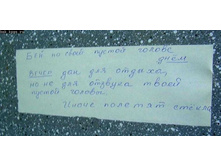 Бей по своей пустой голове
днём
вечер дан для отдыха,
но не для отзвука твоей
пустой головы.
Иначе полетят стёкла